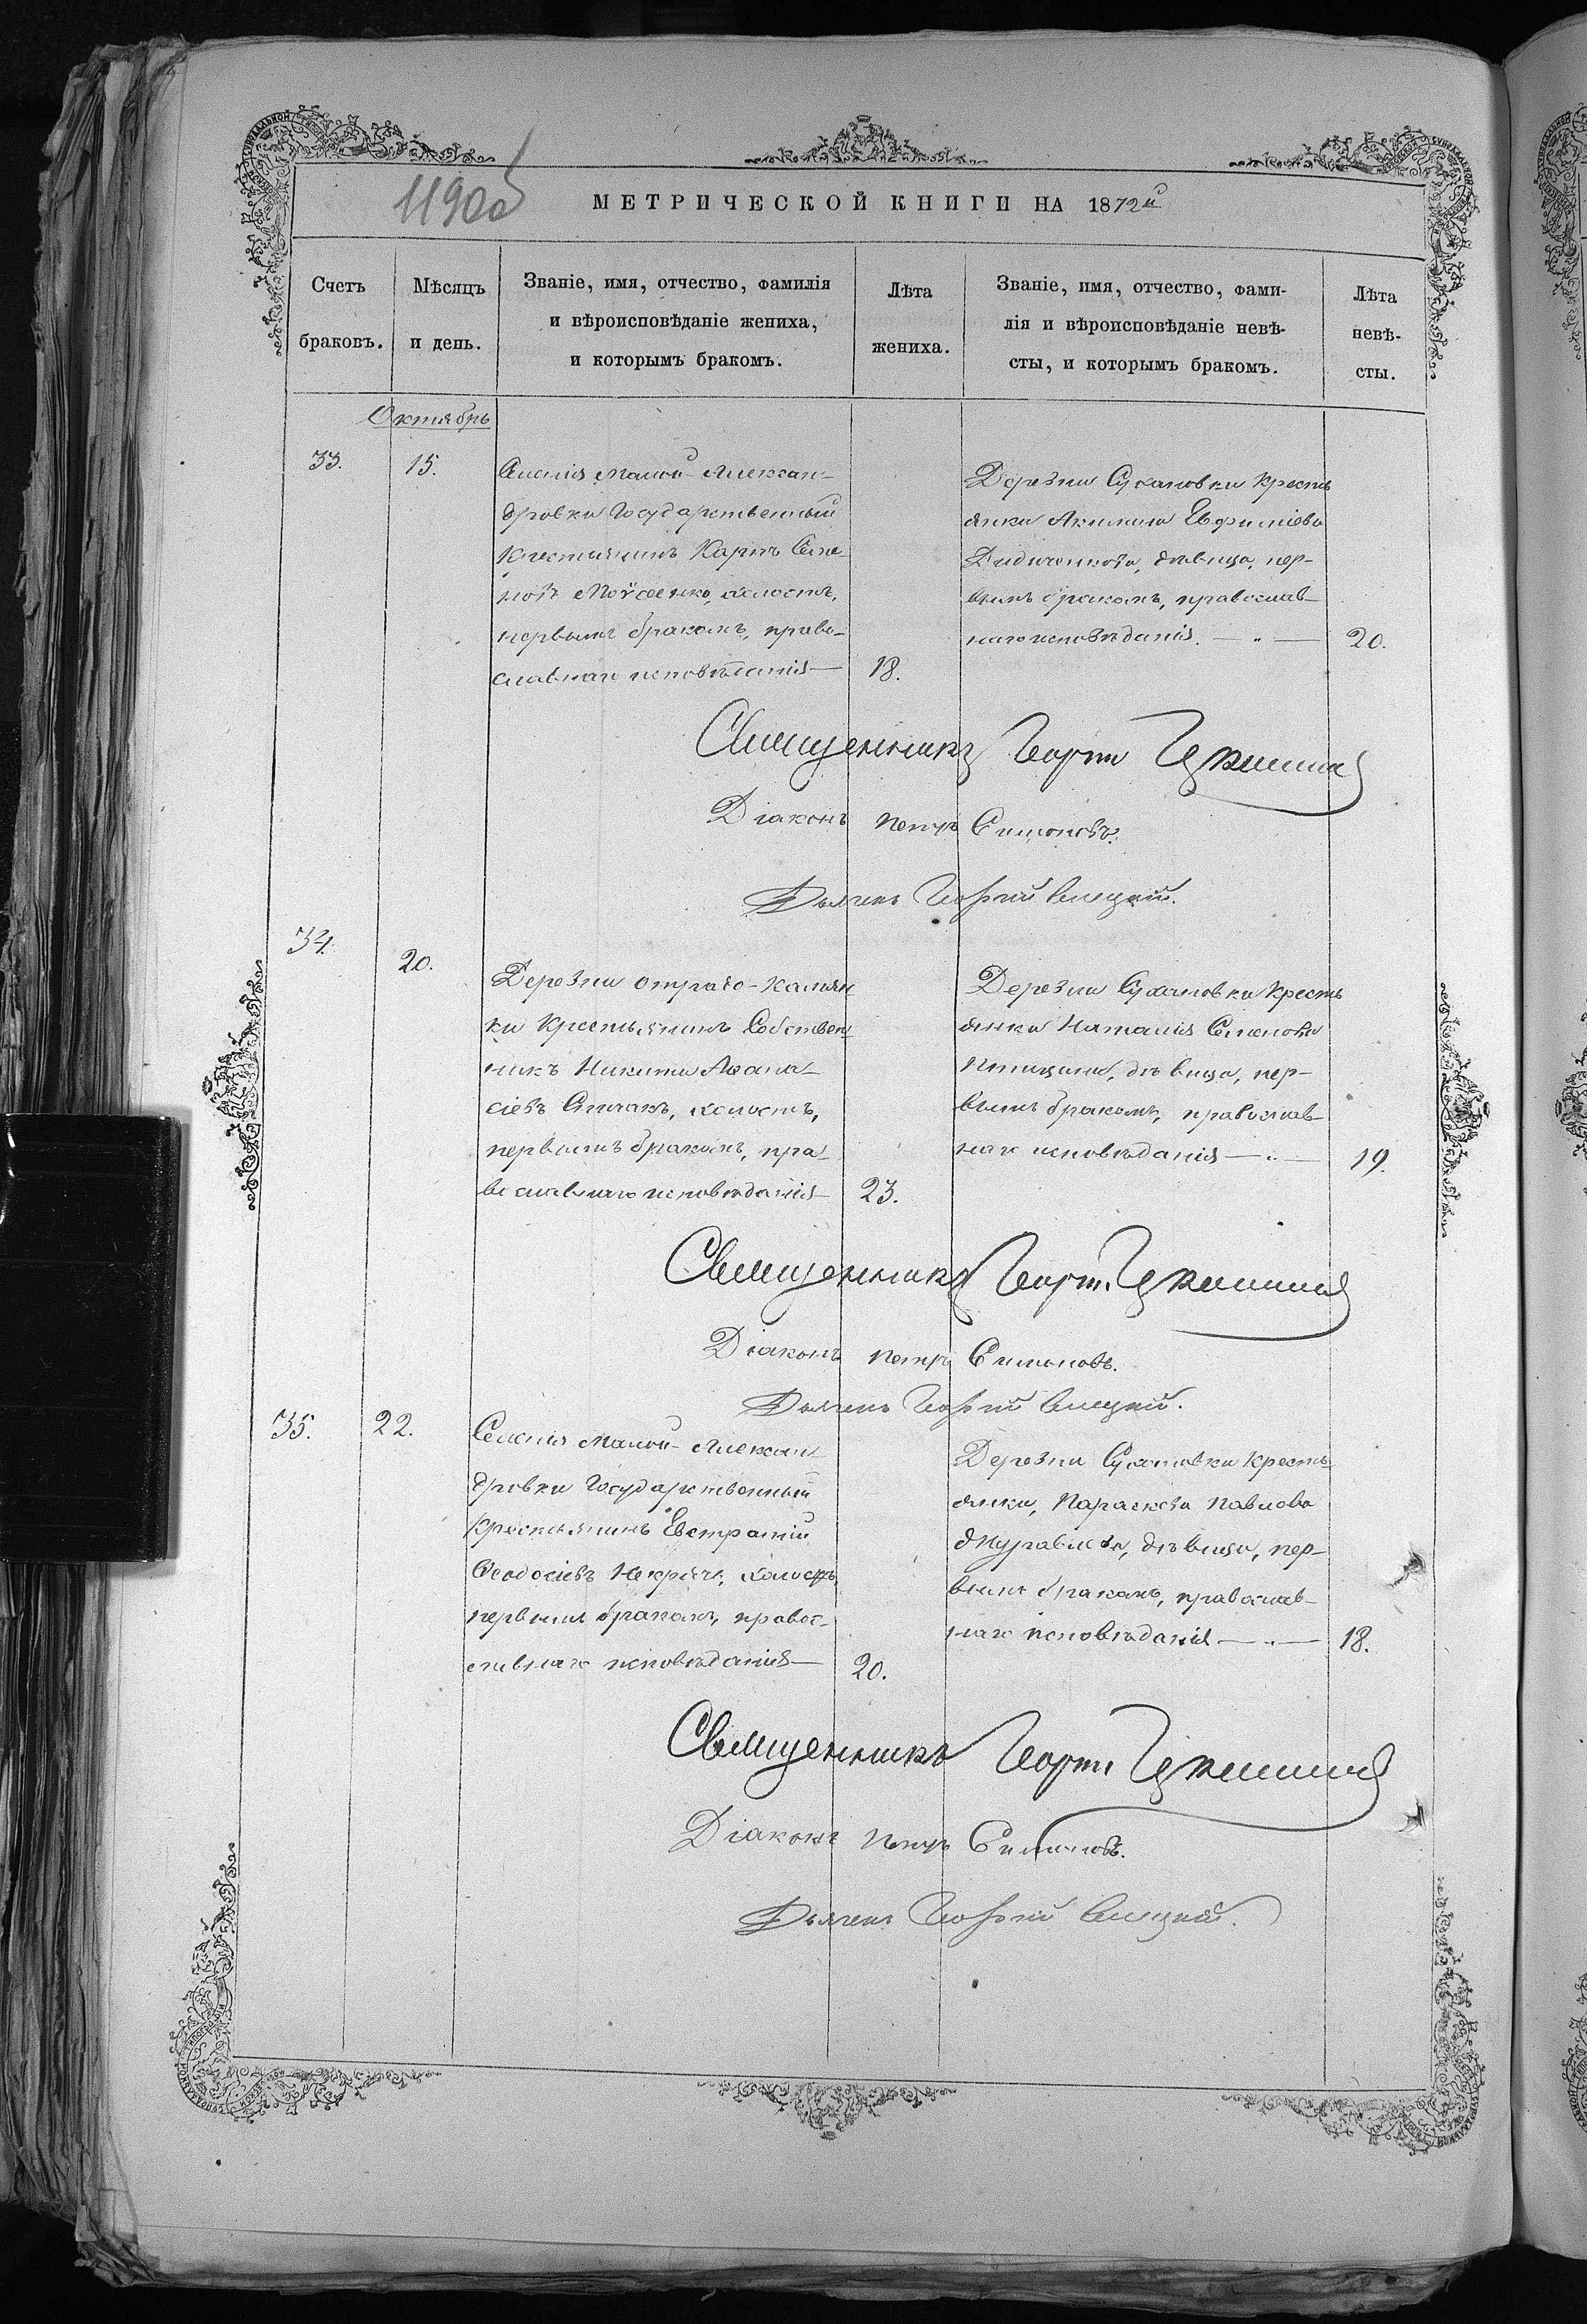 1190об
МЕТРИЧЕСКОЙ КНИГИ НА 1872й
Счетъ браковъ.
Мѣсяцъ и день.
Званіе, имя, отчество, фамилія
и вѣроисповѣданіе жениха,
и которымъ бракомъ.
Лѣта жениха.
Званіе, имя, отчество, фами-
лія и вѣроисповѣданіе невѣ-
сты, и которымъ бракомъ.
Лѣта невѣ-
сты.
Октябрь
33.
15.
Селенія Малой-Алексан-
дровки Государственный
Крестьянинъ Карпъ Семе-
новъ Моусеенко, холостъ,
первымъ бракомъ, право-
славнаго исповѣданія —
18.
Деревни Сухановки Кресть
янка Акилина Евфиміева
Дидиченкова, дѣвица, пер-
вымъ бракомъ, православ-
наго исповѣданія. — " —
20.
Священникъ Георгій
Діаконъ Петръ Симоновъ.
Дьячекъ Георгій
34.
20.
Деревни Отрадо-Камян
ки Крестьянинъ Собствен
никъ Никита Аѳана-
сіевъ Спичакъ, холостъ,
первымъ бракомъ, пра-
вославнаго исповѣданія —
23.
Деревни Сухановки Кресть
янка Наталія Семенова
Птицина, дѣвица, пер-
вымъ бракомъ, православ-
наго исповѣданія — " —
19.
Священникъ Георгій
Діаконъ Петръ Симоновъ.
Дьячекъ Георгій
35.
22.
Селенія Малой-Алексан
дровки Государственный
Крестьянинъ Евстратій
Ѳеодосіевъ холостъ,
первымъ бракомъ, правос-
лавнаго исповѣданія —
20.
Деревни Сухановки Кресть-
янка, Параскева Павлова
Журавлева, дѣвица, пер-
вымъ бракомъ, православ-
наго исповѣданія — " —
18.
Священникъ Георгій
Діаконъ Петръ Симоновъ.
Дьячекъ Георгій